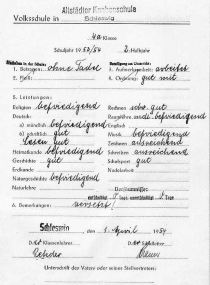 Altstädter Knabenschule
Volksschule in Schleswig
4a Klasse
Schuljahr 1953/54 2. Halbjahr
1. Betragen: ohne Tadel 3. Aufmerksamkeit: arbeitet
2. Fleiß: 4. Ordnung: gut mit
5. Leistungen:
Religion befriedigend Rechnen sehr gut
Deutsch: Raumlehre befriedigend
a) mündlich befriedigend Englisch
b) schriftlich gut Musik befriedigend
Lesen gut Zeichnen ausreichend
Heimatkunde befriedigend Schreiben ausreichend
Geschichte gut Sport gut
Erdkunde Nadelarbeit
Naturgeschichte befriedigend
Naturlehre
Tage
6. Bemerkungen: versetzt!
Schleswig, den 1. April 1954
Klassenlehrer
Unterschrift des Vaters oder seines Stellvertreters: